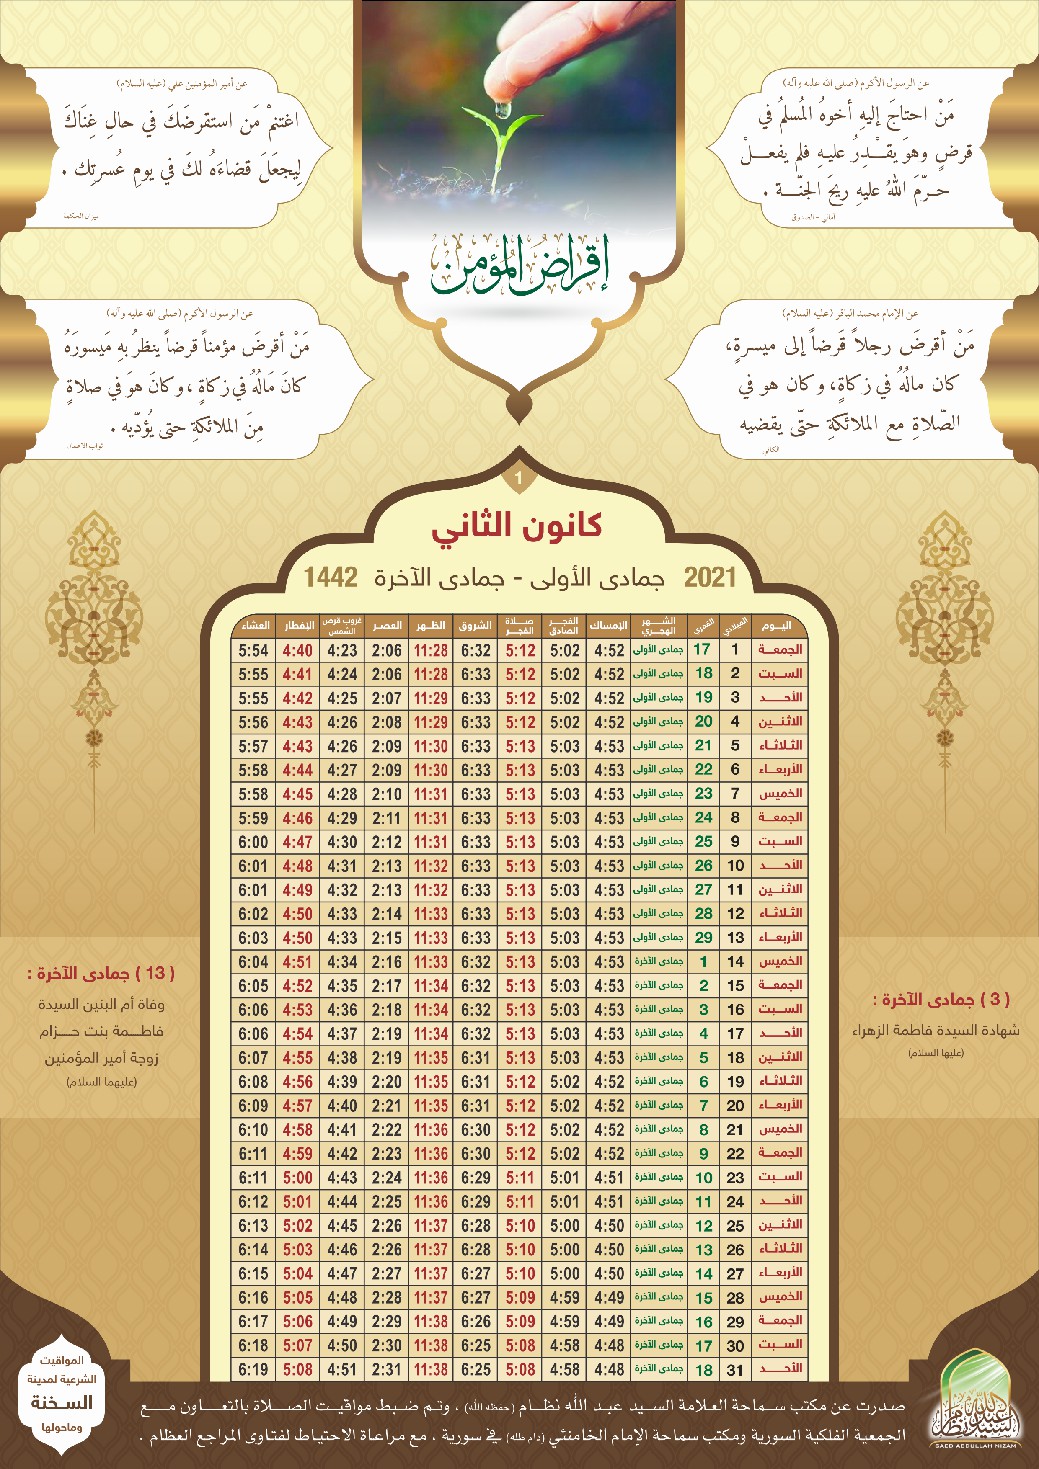 عن الرسول الأكرم (صلى الله عليه وآله)
مَنْ احتاجَ إليهِ أخوهُ المُسلمُ في
قرضٍ وهوَ يقْدِرُ عليهِ فلم يفعلْ
حرّمَ اللهُ عليهِ ريحَ الجنّة .
أمالي - الصدوق
عن أمير المؤمنين علي (عليه السلام)
اغتنمْ مَن استقرضَكَ في حالِ غِنَاكَ
لِيجعَلَ قضاءَه لكَ في يومِ عُسرتِك .
ميزان الحكمة
إقراض المؤمن
عن الإمام محمد الباقر (عليه السلام)
مَنْ أقرضَ رجلاً قَرضاً إلى ميسرةٍ،
كان مالُهُ في زكاةٍ، وكان هو في
الصّلاةِ مع الملائكةِ حتّى يقضيه
الكافي
عن الرسول الأكرم (صلى الله عليه وآله)
مَنْ أقرضَ مؤمناً قرضاً ينظرُ بهِ مَيسورَهُ
كانَ مَالُهُ في زكاةٍ ، وكانَ هوَ في صلاةٍ
مِنَ الملائكةِ حتى يُؤدّيه .
ثواب الاعمال
1
كانون الثاني
2021 جمادى الأولى - جمادى الآخرة 1442
اليوم الميلادي القمري الشهر الهجري الإمساك الفجر الصادق صلاة الفجر الشروق الظهر العصر غروب قرص الشمس الإفطار العشاء
الجمعة 1 17 جمادى الأولى 4:52 5:02 5:12 6:32 11:28 2:06 4:23 4:40 5:54
السبت 2 18 جمادى الأولى 4:52 5:02 5:12 6:33 11:28 2:06 4:24 4:41 5:55
الأحد 3 19 جمادى الأولى 4:52 5:02 5:12 6:33 11:29 2:07 4:25 4:42 5:55
الاثنين 4 20 جمادى الأولى 4:52 5:02 5:12 6:33 11:29 2:08 4:26 4:43 5:56
الثلاثاء 5 21 جمادى الأولى 4:53 5:03 5:13 6:33 11:30 2:09 4:26 4:43 5:57
الأربعاء 6 22 جمادى الأولى 4:53 5:03 5:13 6:33 11:30 2:09 4:27 4:44 5:58
الخميس 7 23 جمادى الأولى 4:53 5:03 5:13 6:33 11:31 2:10 4:28 4:45 5:58
الجمعة 8 24 جمادى الأولى 4:53 5:03 5:13 6:33 11:31 2:11 4:29 4:46 5:59
السبت 9 25 جمادى الأولى 4:53 5:03 5:13 6:33 11:31 2:12 4:30 4:47 6:00
الأحد 10 26 جمادى الأولى 4:53 5:03 5:13 6:33 11:32 2:13 4:31 4:48 6:01
الاثنين 11 27 جمادى الأولى 4:53 5:03 5:13 6:33 11:32 2:13 4:32 4:49 6:01
الثلاثاء 12 28 جمادى الأولى 4:53 5:03 5:13 6:33 11:33 2:14 4:33 4:50 6:02
الأربعاء 13 29 جمادى الأولى 4:53 5:03 5:13 6:33 11:33 2:15 4:33 4:50 6:03
الخميس 14 1 جمادى الآخرة 4:53 5:03 5:13 6:32 11:33 2:16 4:34 4:51 6:04
الجمعة 15 2 جمادى الآخرة 4:53 5:03 5:13 6:32 11:34 2:17 4:35 4:52 6:05
السبت 16 3 جمادى الآخرة 4:53 5:03 5:13 6:32 11:34 2:18 4:36 4:53 6:06
الأحد 17 4 جمادى الآخرة 4:53 5:03 5:13 6:32 11:34 2:19 4:37 4:54 6:06
الاثنين 18 5 جمادى الآخرة 4:53 5:03 5:13 6:31 11:35 2:19 4:38 4:55 6:07
الثلاثاء 19 6 جمادى الآخرة 4:52 5:02 5:12 6:31 11:35 2:20 4:39 4:56 6:08
الأربعاء 20 7 جمادى الآخرة 4:52 5:02 5:12 6:31 11:35 2:21 4:40 4:57 6:09
الخميس 21 8 جمادى الآخرة 4:52 5:02 5:12 6:30 11:36 2:22 4:41 4:58 6:10
الجمعة 22 9 جمادى الآخرة 4:52 5:02 5:12 6:30 11:36 2:23 4:42 4:59 6:11
السبت 23 10 جمادى الآخرة 4:51 5:01 5:11 6:29 11:36 2:24 4:43 5:00 6:11
الأحد 24 11 جمادى الآخرة 4:51 5:01 5:11 6:29 11:36 2:25 4:44 5:01 6:12
الاثنين 25 12 جمادى الآخرة 4:50 5:00 5:10 6:28 11:37 2:26 4:45 5:02 6:13
الثلاثاء 26 13 جمادى الآخرة 4:50 5:00 5:10 6:28 11:37 2:26 4:46 5:03 6:14
الأربعاء 27 14 جمادى الآخرة 4:50 5:00 5:10 6:27 11:37 2:27 4:47 5:04 6:15
الخميس 28 15 جمادى الآخرة 4:49 4:59 5:09 6:27 11:37 2:28 4:48 5:05 6:16
الجمعة 29 16 جمادى الآخرة 4:49 4:59 5:09 6:26 11:38 2:29 4:49 5:06 6:17
السبت 30 17 جمادى الآخرة 4:48 4:58 5:08 6:25 11:38 2:30 4:50 5:07 6:18
الأحد 31 18 جمادى الآخرة 4:48 4:58 5:08 6:25 11:38 2:31 4:51 5:08 6:19
( 3 ) جمادى الآخرة :
شهادة السيدة فاطمة الزهراء
(عليها السلام)
( 13 ) جمادى الآخرة :
وفاة أم البنين السيدة
فاطمة بنت حزام
زوجة أمير المؤمنين
(عليهما السلام)
صدرت عن مكتب سماحة العلامة السيد عبد الله نظام (حفظه الله) ، وتم ضبط مواقيت الصلاة بالتعاون مع
الجمعية الفلكية السورية ومكتب سماحة الإمام الخامنئي (دام ظله) في سورية ، مع مراعاة الاحتياط لفتاوى المراجع العظام .
المواقيت
الشرعية لمدينة
السخنة
وماحولها
السيد عبد الله نظام
SAED ABDULLAH NIZAM